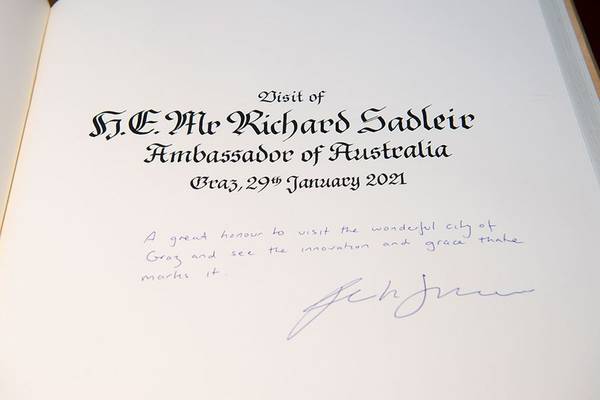 Visit of
H.E. Mr Richard Sadleir
Ambassador of Australia
Graz, 29th January 2021
A great honour to visit the wonderful city of
Graz and see the innovation and grace
marks it.